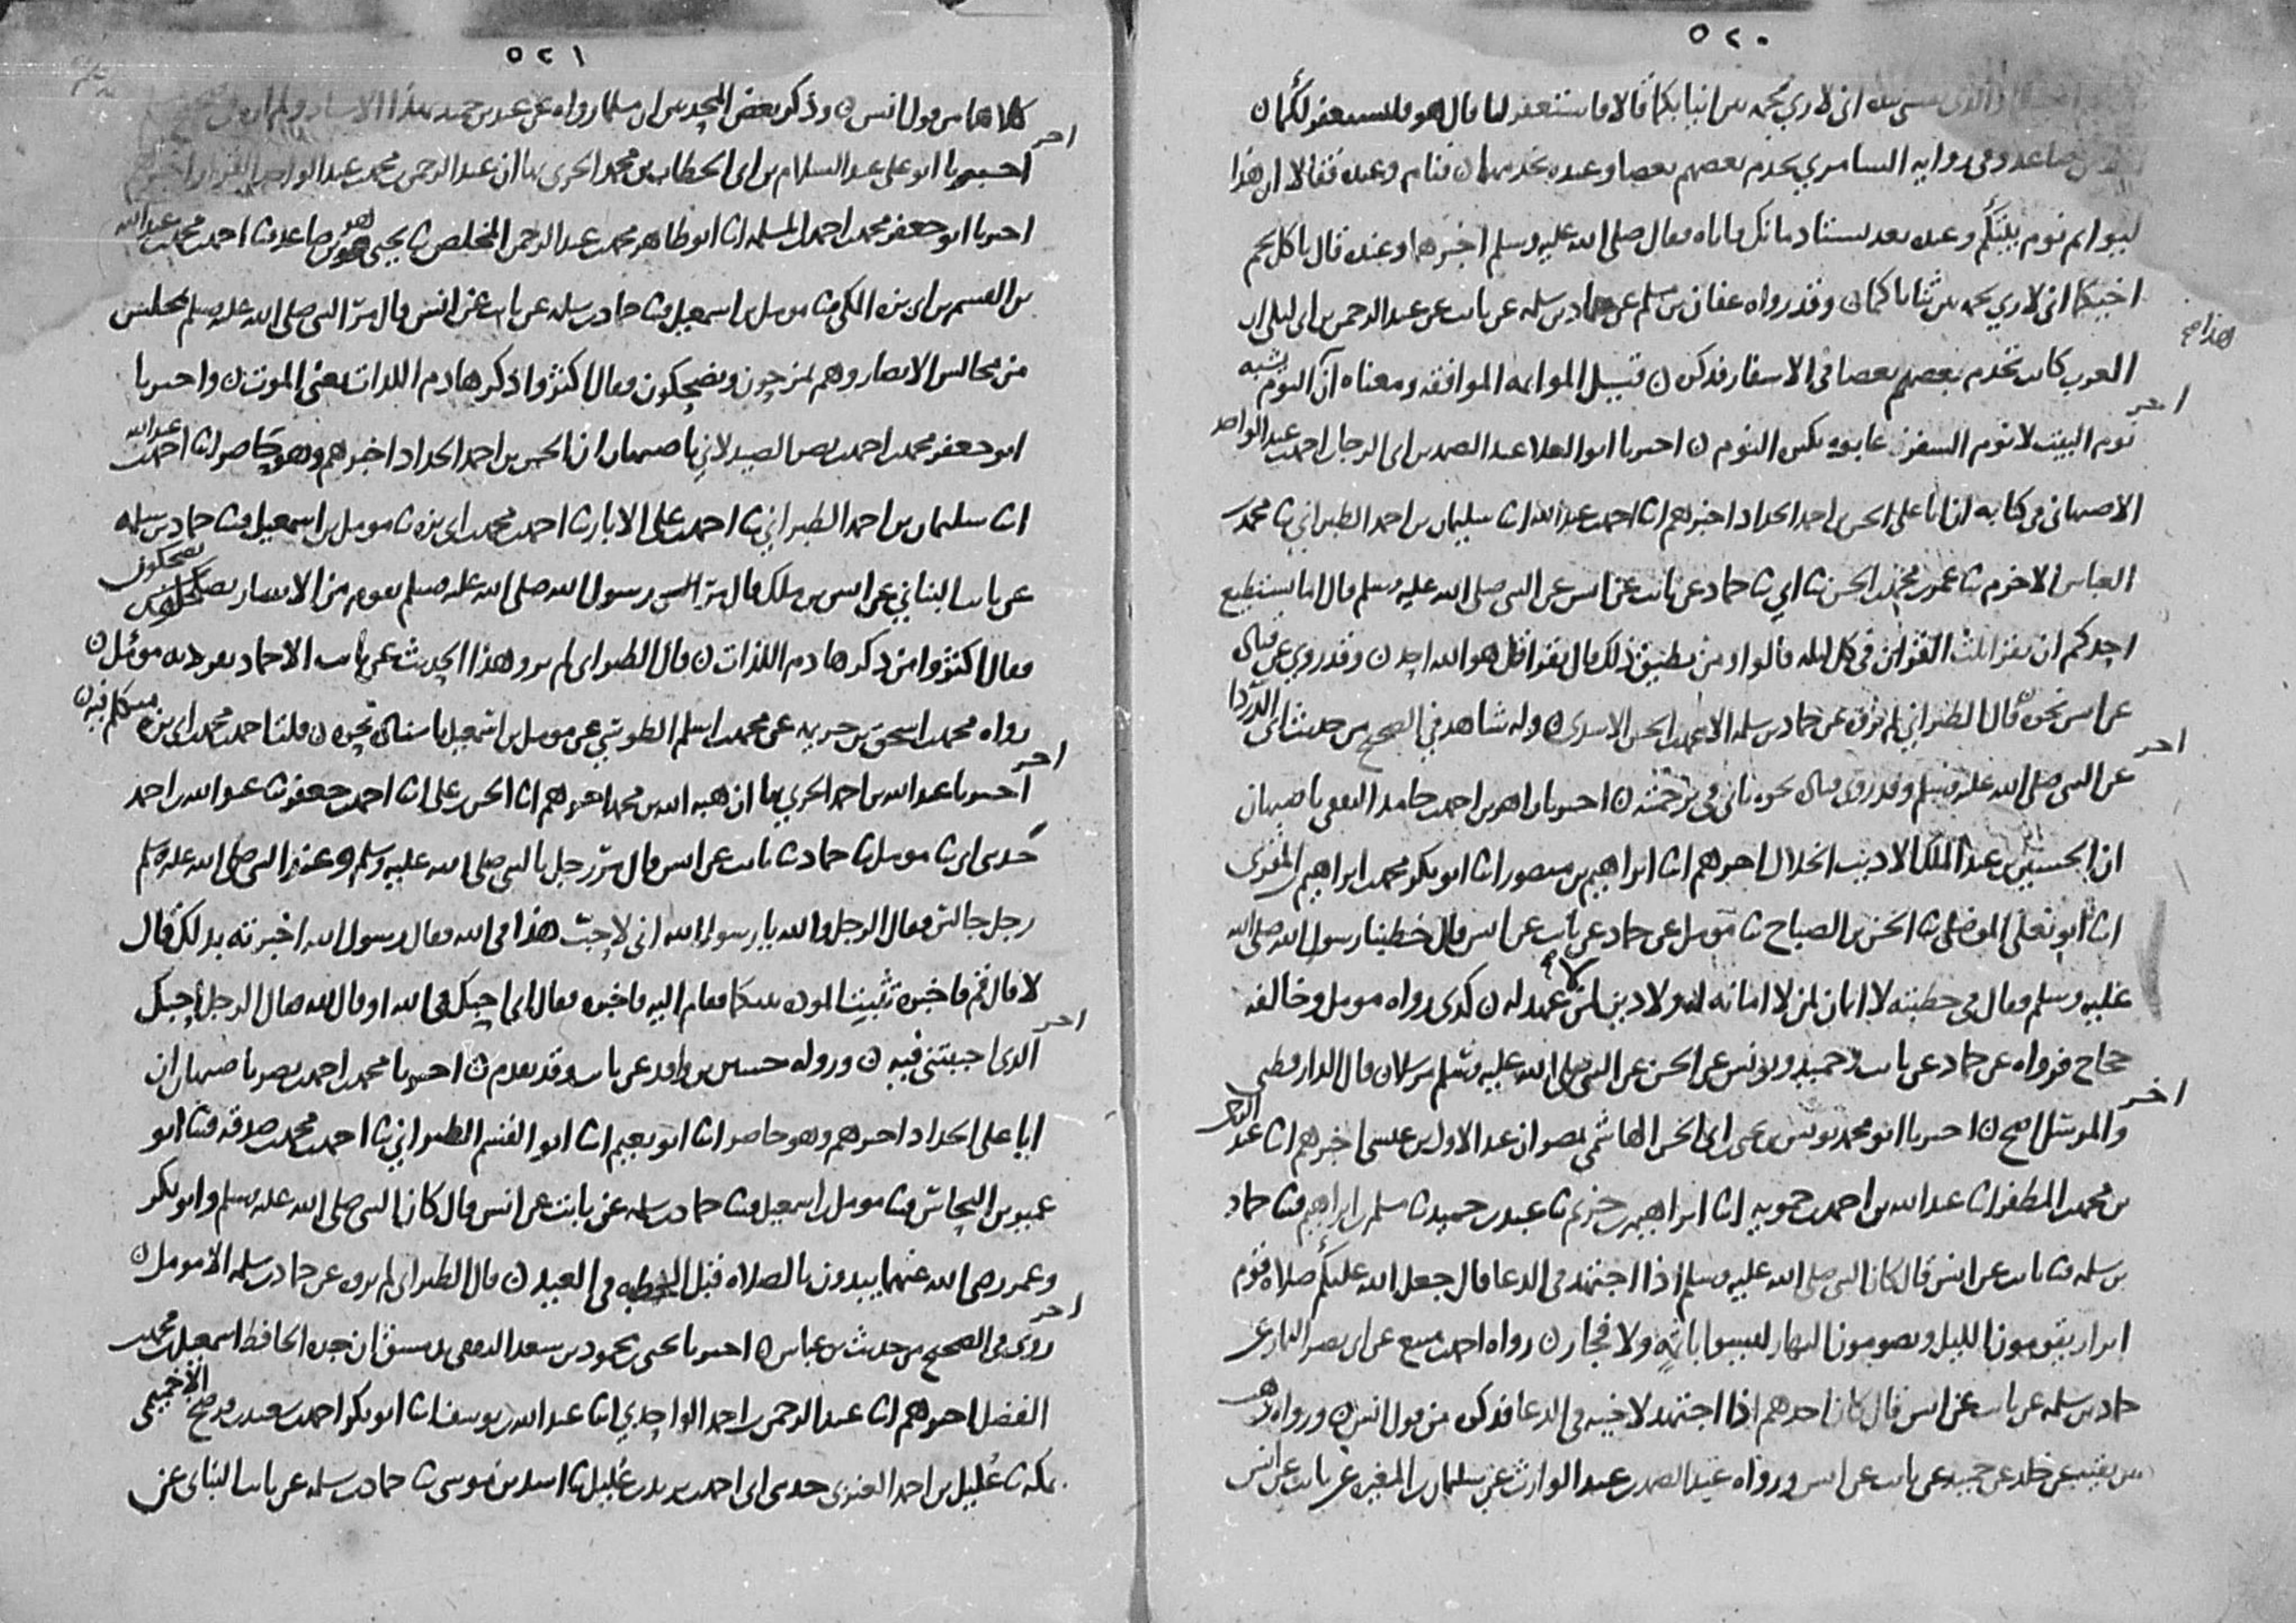 ٥٢٠
اني لاري لحمه بين انيابكما قالا فاستغفر لنا قال هو فليستغفر لكما ن
صاعد وفي روايه السامري يخدم بعضهم بعضا وعنده يخدمهما ن فنام وعنده فقالا ان هذا
ليوايم نوم بيتكم وعنده بعد يستادمانك فاتاه فقال صلى الله عليه وسلم اخبرهما وعنده قال باكل لحم
اخيكما اني لاري لحمه بين ثناياكما ن وقد رواه عفان بن مسلم عن حماد بن سلمه عن ثابت عن عبد الرحمن بن ابي ليلى ان
هذا صح
العرب كانت تخدم بعضهم بعضا في الاسفار فذكره ن قيل المواءمه الموافقه ومعناه ان النوم يشبه
اخر
نوم البيت لا نوم السفر عابوه بكثره النوم ن اخبرنا ابو العلا عبد الصمد بن ابي الرجا بن احمد بن عبد الواحد
الاصبهاني في كتابه ان ابا علي الحسن بن احمد الحداد اخبرهم ابنا احمد بن عبد الله ابنا سليمان بن احمد الطبراني ثنا محمد بن
العباس الاخرم ثنا عمر بن محمد بن الحسن ثنا ابي ثنا حماد عن ثابت عن انس عن النبي صلى الله عليه وسلم قال اما يستطيع
احدكم ان يقرا ثلث القران في كل ليله قالوا ومن يطيق ذلك قال يقرا قل هو الله احد ن وقد روي عن قتاده
عن انس نحوه قال الطبراني لم يروه عن حماد بن سلمه الا محمد بن الحسن الاسدي ن وله شاهد في الصحيح من حديث ابي الدردا
اخر
عن النبي صلى الله عليه وسلم وقد روى قتاده نحوه ياتي في ترجمته ن اخبرنا زاهر بن احمد بن حامد الثقفي باصبهان
ان الحسين بن عبد الملك الاديب الخلال اخبرهم ابنا ابراهيم بن منصور ابنا ابو بكر محمد بن ابراهيم المقرى
ابنا ابو يعلى الموصلي ثنا الحسن بن الصباح ثنا مومل عن حماد عن ثابت عن انس قال خطبنا رسول الله صلى الله
عليه وسلم فقال في خطبته لا ايمان لمن لا امانه له ولا دين لمن لا عهد له ن كذى رواه مومل وخالفه
حجاج فرواه عن حماد عن ثابت وحميد ويونس عن الحسن عن النبي صلى الله عليه وسلم مرسلا ن قال الدارقطني
اخر
والمرسل اصح ن اخبرنا ابو محمد يونس بن يحيى بن ابي الحسن الهاشمي بمصر ان عبد الاول بن عيسى اخبرهم ابنا عبد الرحمن
بن محمد بن المظفر ابنا عبد الله بن احمد بن حمويه ابنا ابراهيم بن خزيم ثنا عبد بن حميد ثنا مسلم بن ابراهيم ثنا حماد
بن سلمه ثنا ثابت عن انس قال كان النبي صلى الله عليه وسلم اذا اجتهد في الدعا قال جعل الله عليكم صلاة قوم
ابرار يقومون الليل ويصومون النهار ليسوا باثمه ولا فجار ن رواه احمد بن منيع عن ابي نصر التمار عن
حماد بن سلمه عن ثابت عن انس قال كان احدهم اذا اجتهد لاخيه في الدعا فذكره من قول انس ن ورواه وهب
بن بقيه عن خالد عن حميد عن ثابت عن انس ورواه عبد الصمد بن عبد الوارث عن سليمان بن المغيره عن ثابت عن انس
٥٢١
كلاهما من قول انس ن وذكر بعض المحدثين ان مسلما رواه عن عبد بن حميد بهذا الاسناد ولم
اخر
اخبرنا ابو علي عبد السلام بن ابي الخطاب بن محمد الحربي بها ان عبد الرحمن بن محمد بن عبد الواحد القزاز اخبرهم
اخبرنا ابو جعفر محمد بن احمد بن المسلمه ابنا ابو طاهر محمد بن عبد الرحمن المخلص ثنا يحيى هو بن صاعد ثنا احمد بن محمد بن عبد الله
بن القسم بن ابي بزه المكي ثنا مومل بن اسمعيل ثنا حماد بن سلمه عن ثابت عن انس قال مر النبي صلى الله عليه وسلم بمجلس
من مجالس الانصار وهم يمزحون ويضحكون فقال اكثروا ذكر هادم اللذات يعني الموت ن واخبرنا
ابو جعفر محمد بن احمد بن نصر الصيدلاني باصبهان ان الحسن بن احمد الحداد اخبرهم وهو حاضر ابنا احمد بن عبد الله
ابنا سليمان بن احمد الطبراني ثنا احمد بن علي الابار ثنا احمد بن محمد بن ابي بزه ثنا مومل بن اسمعيل ثنا حماد بن سلمه
عن ثابت البناني عن انس بن ملك قال مر رسول الله صلى الله عليه وسلم بقوم من الانصار يضحكون
فقال اكثروا من ذكر هادم اللذات ن قال الطبراني لم يرو هذا الحديث عن ثابت الا حماد تفرد به مومل ن
رواه محمد بن اسحق بن خزيمه عن محمد بن اسلم الطوسي عن مومل بن اسمعيل باسناده نحوه ن قلنا احمد بن محمد بن ابي بزه متكلم فيه ن
اخر
اخبرنا عبد الله بن احمد الحربي بها ان هبه الله بن محمد اخبرهم ابنا الحسن بن علي ابنا احمد بن جعفر ثنا عبد الله بن احمد
حدثني ابي ثنا مومل ثنا حماد ثنا ثابت عن انس قال مر رجل بالنبي صلى الله عليه وسلم وعند النبي صلى الله عليه وسلم
رجل جالس فقال الرجل والله يا رسول الله اني لاحب هذا في الله فقال رسول الله اخبرته بذلك قال
لا قال قم فاخبره تثبت الموده بينكما فقام اليه فاخبره فقال اني احبك في الله او قال احبك لله فقال الرجل احبك
اخر
الذي احببتني فيه ن ورواه حسين بن واقد عن ثابت وقد تقدم ن اخبرنا محمد بن احمد بن نصر باصبهان ان
ابا علي الحداد اخبرهم وهو حاضر ابنا ابو نعيم ابنا ابو القسم الطبراني ثنا احمد بن محمد بن صدقه ثنا ابو
عمير بن النحاس ثنا مومل بن اسمعيل ثنا حماد بن سلمه عن ثابت عن انس قال كان النبي صلى الله عليه وسلم وابو بكر
وعمر رضى الله عنهما يبدون بالصلاه قبل الخطبه في العيد ن قال الطبراني لم يروه عن حماد بن سلمه الا مومل ن
اخر
روى في الصحيح من حديث بن عباس ن اخبرنا يحيى بن محمود بن سعد الثقفي بدمشق ان جده الحافظ اسمعيل بن محمد بن
الفضل اخبرهم ابنا عبد الرحمن بن احمد الواحدي ابنا عبد الله بن يوسف ابنا ابو بكر احمد بن سعيد بن فرضخ الاخميمي
بمكه ثنا عليل بن احمد العنزي حدثني ابي احمد بن يزيد بن عليل ثنا اسد بن موسى ثنا حماد بن سلمه عن ثابت البناني عن